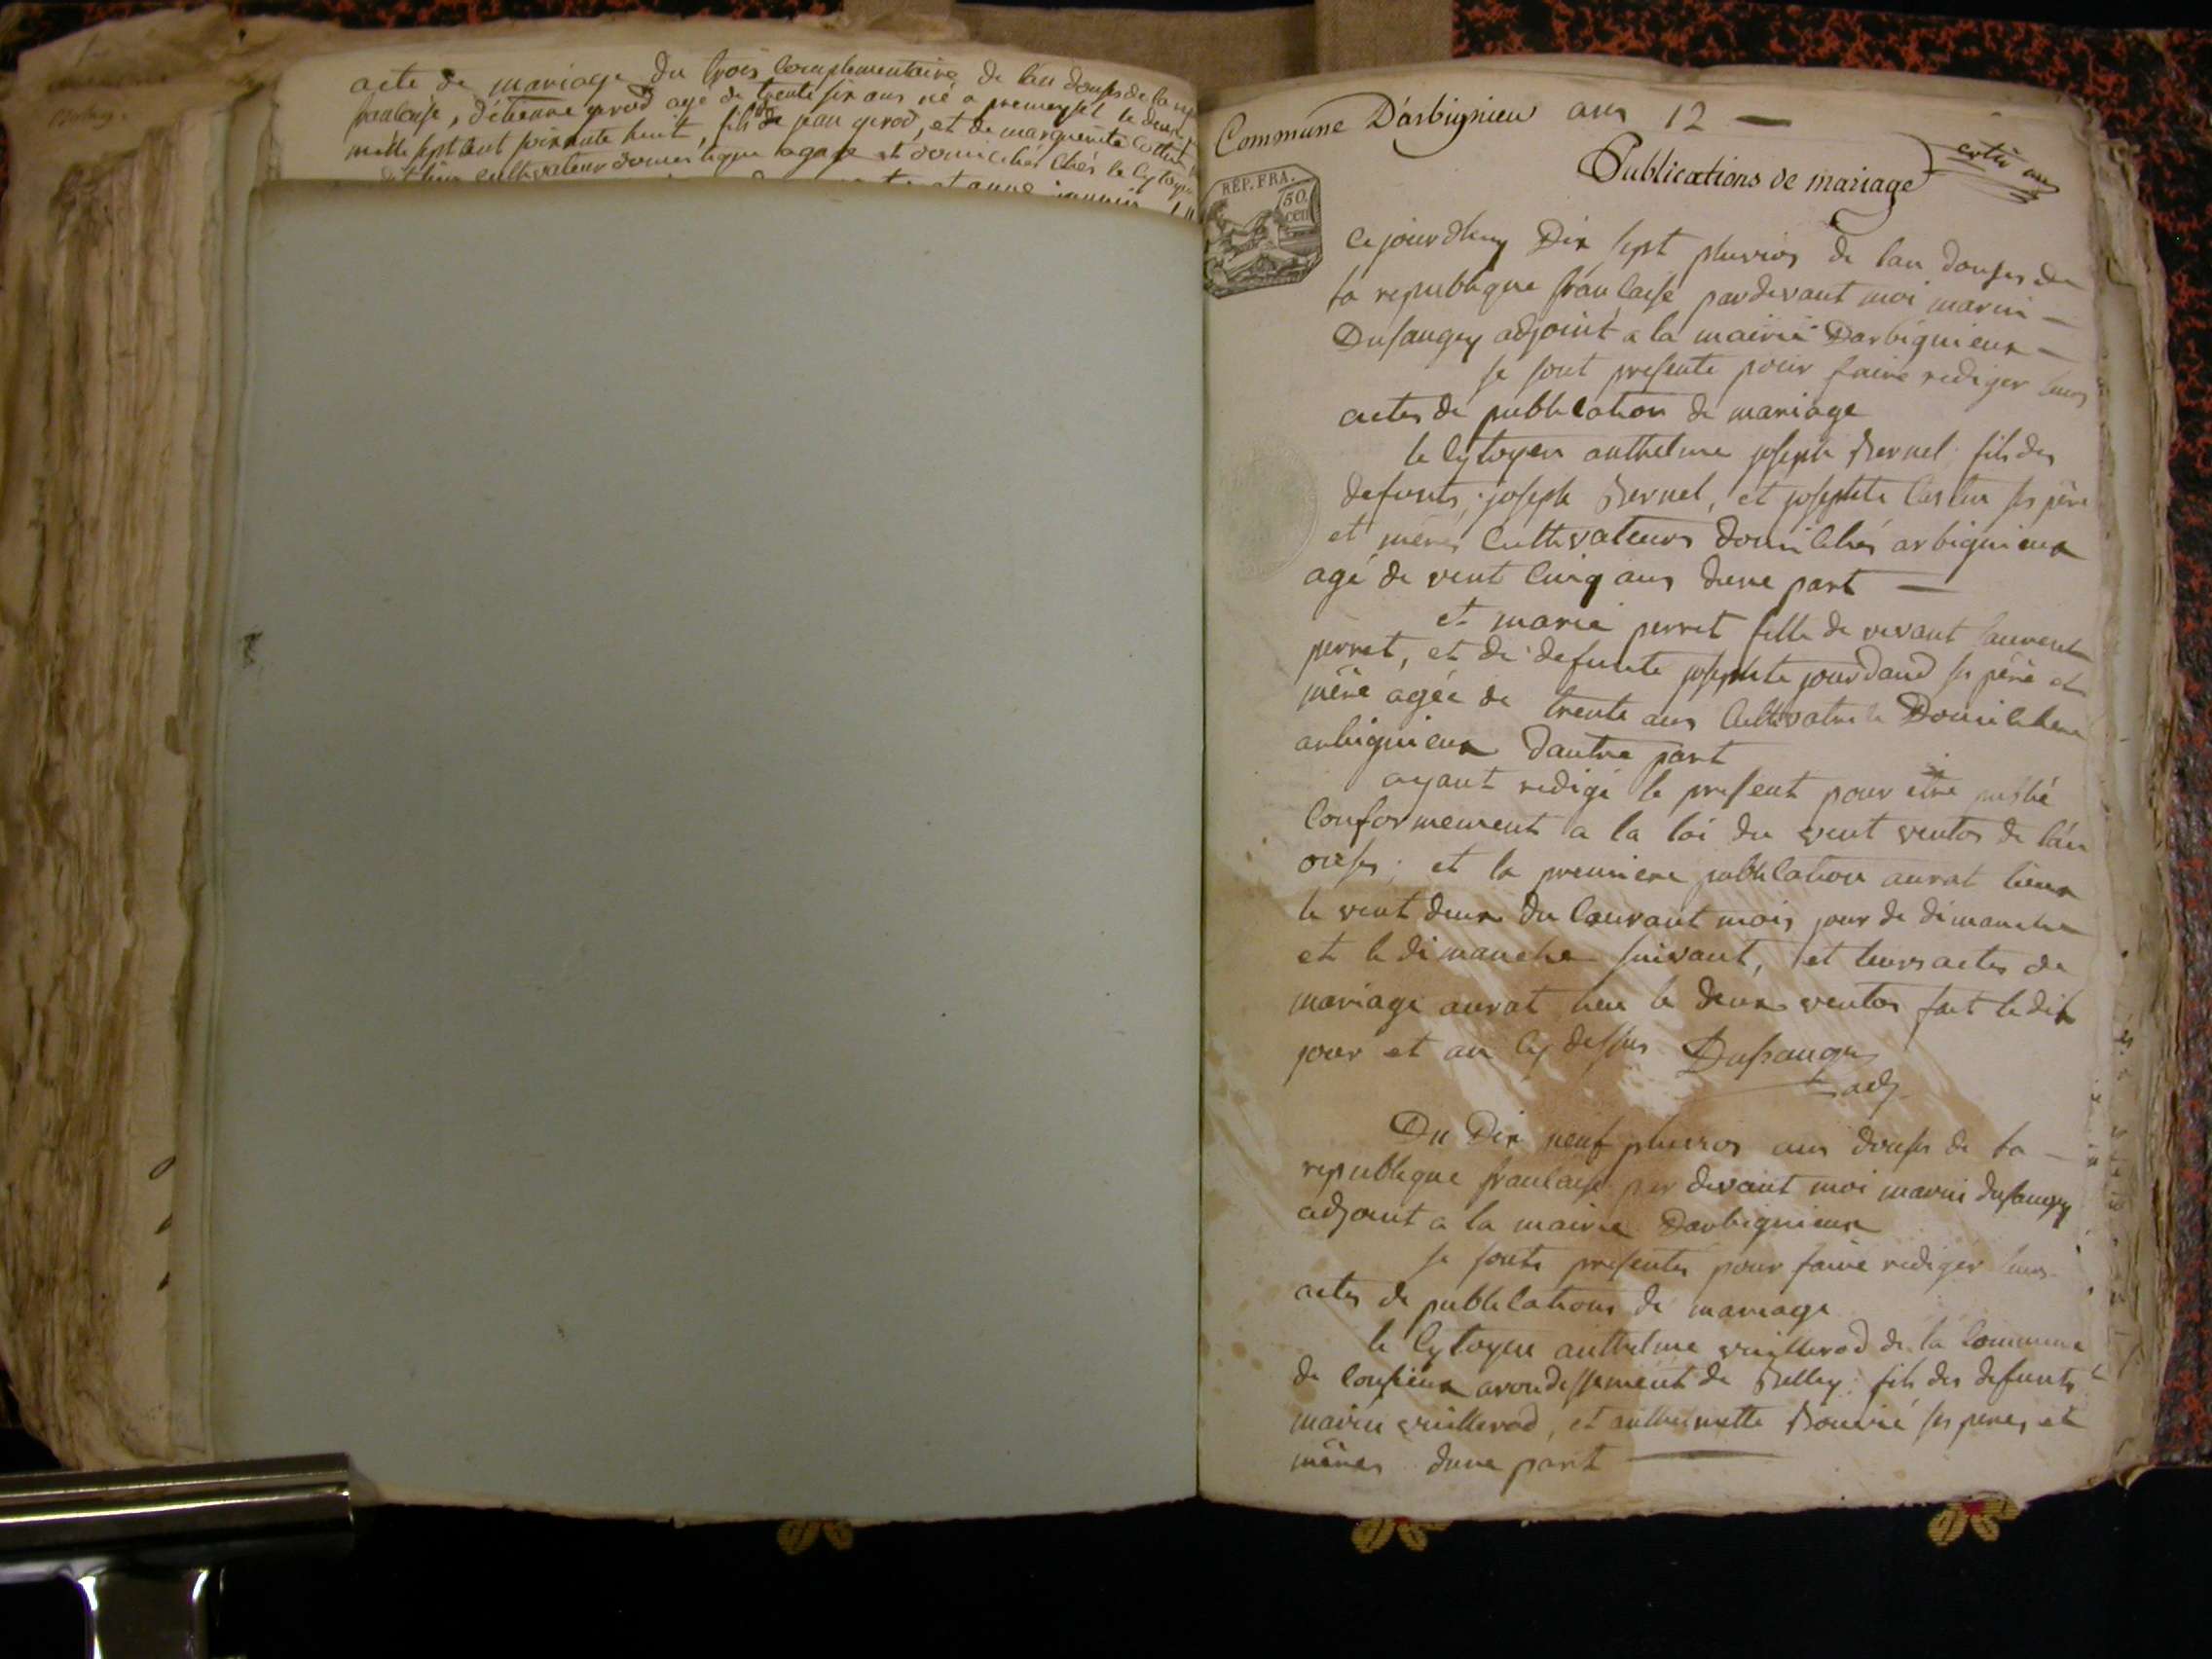 acte de mariage du trois complementaire de l'an douses de la rep
francaise, d'étienne gerod agé de trente six ans né a premeyzel le deux
mille sept cent soixante huit, fils de jean gerod, et de marguerite
cultivateur domestique a gage et domicilié chés le cytoyen
Commune D'arbignieu ans 12 —
Publications de mariage
REP. FRA.
50
cen
Cejourdhuy Dix sept pluvios de lan douses de
la republique francaise pardevant moi marin —
Dusaugey adjoint a la mairie Darbignieux —
se sont presente pour faire rediger leurs
actes de publication de mariage
le Cytoyen anthelme joseph Bernel fils des
defunts, joseph Bernel, et josephte ses père
et mères Cultivateurs domiciliés arbignieux
agé de vent cinq ans dune part —
et marie perret fille de vivant laurent
perret, et de defunte josephte jourdand ses père et
mère agée de trente ans Cultivatrice Domiciliere
arbignieux dautre part
ayant redigé le present pour être publié
Conformement a la loi du vent ventos de l'an
onses; et la premiere publication aurat lieux
le vent deux du Courant mois jour de dimanche
et le dimanche suivant, et leurs actes de
mariage aurat lieu le deux ventos fait le dit
jour et an cy dessus Dusaugey
adj.
Du Dix neuf pluvios ans douses de la —
republique francaise par devant moi marin dusaugey
adjoint a la mairie Darbignieux
se sonts presentes pour faire rediger leurs
actes de publications de mariage
le Cytoyen anthelme vuillerod de la Commune
de Consieux arondissement de Belley fils des defunts
marin vuillerod, et anthelmette Bouvié ses peres et
mères dune part —